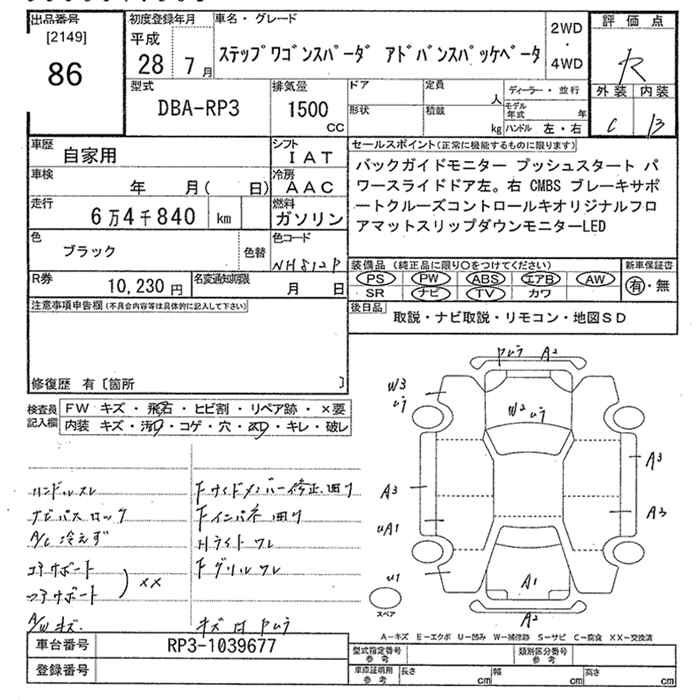 出品番号
[2149]
86
初度登録年月
平成
28 7月
車名・グレード
ステップワゴンスパーダ アドバンスパッケベータ
2WD
・
4WD
評価点
R
外装 内装
C B
型式
DBA-RP3
排気量
1500
CC
ドア
定員
人
形状
積載
kg
ディーラー・並行
モデル年式 年
ハンドル 左・右
車歴
自家用
シフト
IAT
車検
年 月( 日)
冷房
AAC
走行
6万4千840 km
燃料
ガソリン
色
ブラック
色替
色コード
NH812P
R券
10,230円
名変通知期限
月 日
セールスポイント(正常に機能するものに限ります)
バックガイドモニター プッシュスタート パ
ワースライドドア左。右 CMBS ブレーキサポ
ートクルーズコントロールキオリジナルフロ
アマットスリップダウンモニターLED
装備品(純正品に限り○をつけてください)
PS PW ABS エアB AW
SR ナビ TV カワ
新車保証書
有・無
後日品
取説・ナビ取説・リモコン・地図SD
注意事項申告欄(不具合内容等は具体的に記入して下さい)
修復歴 有〔箇所 〕
検査員
記入欄
FW キズ・飛石・ヒビ割・リペア跡・×要
内装 キズ・汚レ・コゲ・穴・凹・キレ・破レ
ハンドルスレ
ナビパスロック
A/C 冷えず
コアサポート
××
A/Wキズ
Fサイドメンバー修正、曲り
Fインパネ曲り
Hライトワレ
Fグリルワレ
A2
W3
W2
A3
A3
A3
uA1
u1
A1
A2
スペア
A−キズ E−エクボ U−凹み W−補修跡 S−サビ C−腐食 XX−交換済
車台番号
RP3-1039677
登録番号
型式指定番号
参考
類別区分番号
参考
車庫証明用
参考
長さ cm
幅 cm
高さ cm